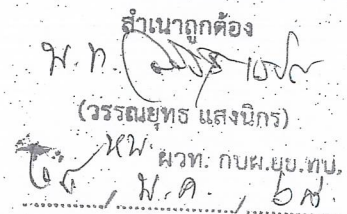 สำเนาถูกต้อง
พ.ท.
(วรรณยุทธ แสงนิกร)
หน. ผวท. กบผ.ยบ.ทบ.
/ พ.ค. / ๖๘